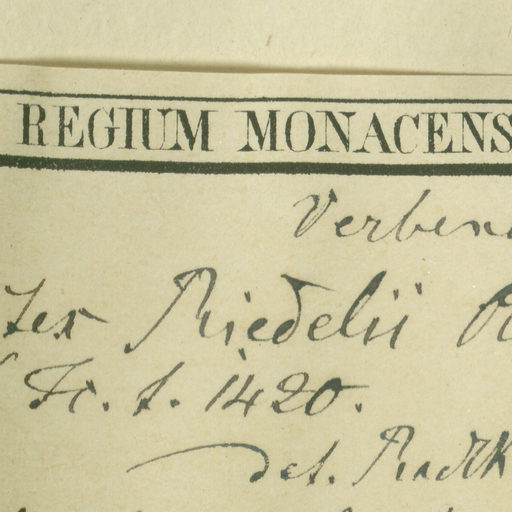 REGIUM MONACENS
Verben
tex Riedelii
Fr. t. 1420.
det. Radlk